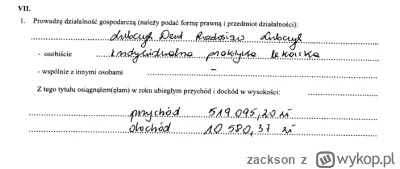 VII.
1. Prowadzę działalność gospodarczą (należy podać formę prawną i przedmiot działalności):
Lubczyk Dent Radosław Lubczyk
- osobiście Indywidualna praktyka lekarska
- wspólnie z innymi osobami -
Z tego tytułu osiągnąłem(ęłam) w roku ubiegłym przychód i dochód w wysokości:
przychód 519 095,20 zł
dochód 10 580,37 zł
zackson z wykop.pl